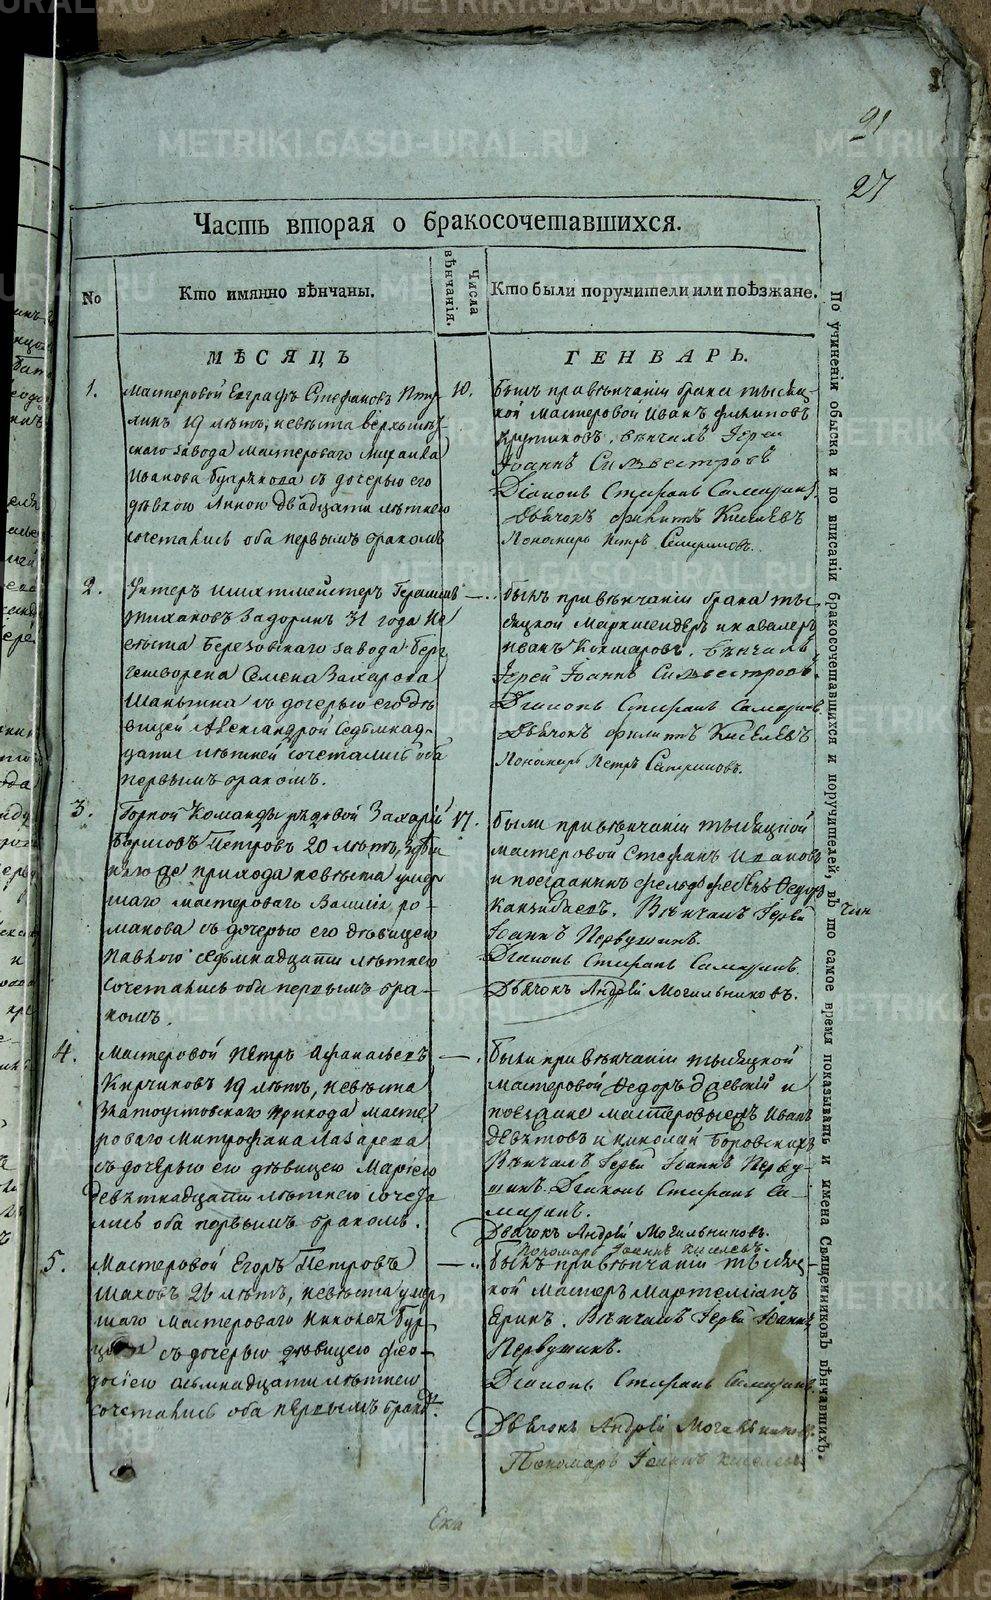 91
27
Часть вторая о бракосочетавшихся.
No
Кто имянно вѣнчаны.
Числа вѣнчанія.
Кто были поручители или поѣзжане.
МѢСЯЦЪ
ГЕНВАРЬ.
1.
Мастеровой Евграфъ Стефановъ
19 лѣтъ, невѣста верхъ
скаго завода мастероваго Михаила
Иванова съ дочерью его
дѣвкою Анною двадцати лѣтнею
сочетались оба первымъ бракомъ
10.
былъ при вѣнчаніи брака тысяц-
кой мастеровой Иванъ Филиповъ
Крутиковъ. вѣнчалъ Іерей
Іоаннъ Сильвестровъ
Діаконъ Стефанъ Самаринъ
Дьячокъ Филипъ Киселевъ
Пономарь Петръ
2.
Унтеръ шихтмейстеръ Герасимъ
Тихановъ Задоринъ 31 года не
вѣста Березовскаго завода берг
гешворена Семена Захарова
съ дочерью его дѣ
вицей Александрой седьмнад-
цати лѣтней сочетались оба
первымъ бракомъ.
былъ при вѣнчаніи брака тыс
яцкой Маркшейдеръ и кавалеръ
Иванъ Кокшаровъ. вѣнчалъ
Іерей Іоаннъ Сильвестровъ
Діаконъ Стефанъ Самаринъ
Дьячокъ Филипъ Киселевъ
Пономарь Петръ
3.
Горной команды рядовой Захарій
Борисовъ Петровъ 20 лѣтъ,
прихода невѣста умер
шаго мастероваго Василія Ро-
манова съ дочерью его дѣвицею
Павлою седьмнадцати лѣтнею
сочетались оба первымъ бра-
комъ.
17.
были при вѣнчаніи тысяцкой
мастеровой Стефанъ Ивановъ
и поезжанинъ фельдфебель Федоръ
Вѣнчалъ Іерей
Іоаннъ Первушинъ.
Діаконъ Стефанъ Самаринъ
Дьячокъ Андрей Могильниковъ.
4.
Мастеровой Петръ Афанасьевъ
Кирчиковъ 19 лѣтъ, невѣста
Златоустовскаго прихода масте
роваго Митрофана Лазарева
съ дочерью его дѣвицею Маріею
девятнадцати лѣтнею сочета
лись оба первымъ бракомъ.
были при вѣнчаніи тысяцкой
мастеровой Федоръ и
поезжане мастеровые Иванъ
Девятовъ и Николай Боровскихъ
Вѣнчалъ Іерей Іоаннъ Перву-
шинъ Діаконъ Стефанъ Са-
маринъ.
Дьячокъ Андрей Могильниковъ.
Пономарь Іоаннъ Киселевъ.
5.
Мастеровой Егоръ Петровъ
Шаховъ 26 лѣтъ, невѣста умер
шаго мастероваго Николая Бур
съ дочерью дѣвицею Фео-
досіею осьмнадцати лѣтнею
сочетались оба первымъ бракомъ.
былъ при вѣнчаніи тысяц-
кой мастеръ Мартеміанъ
Еринъ. Вѣнчалъ Іерей Іоаннъ
Первушинъ.
Діаконъ Стефанъ Самаринъ
Дьячокъ Андрей Могильниковъ.
Пономарь Іоаннъ Киселевъ
По учиненіи обыска и по вписаніи бракосочетавшихся и поручителей, въ то самое время показывать и имена Священниковъ вѣнчавшихъ.
Ека
METRIKI.GASO-URAL.RU